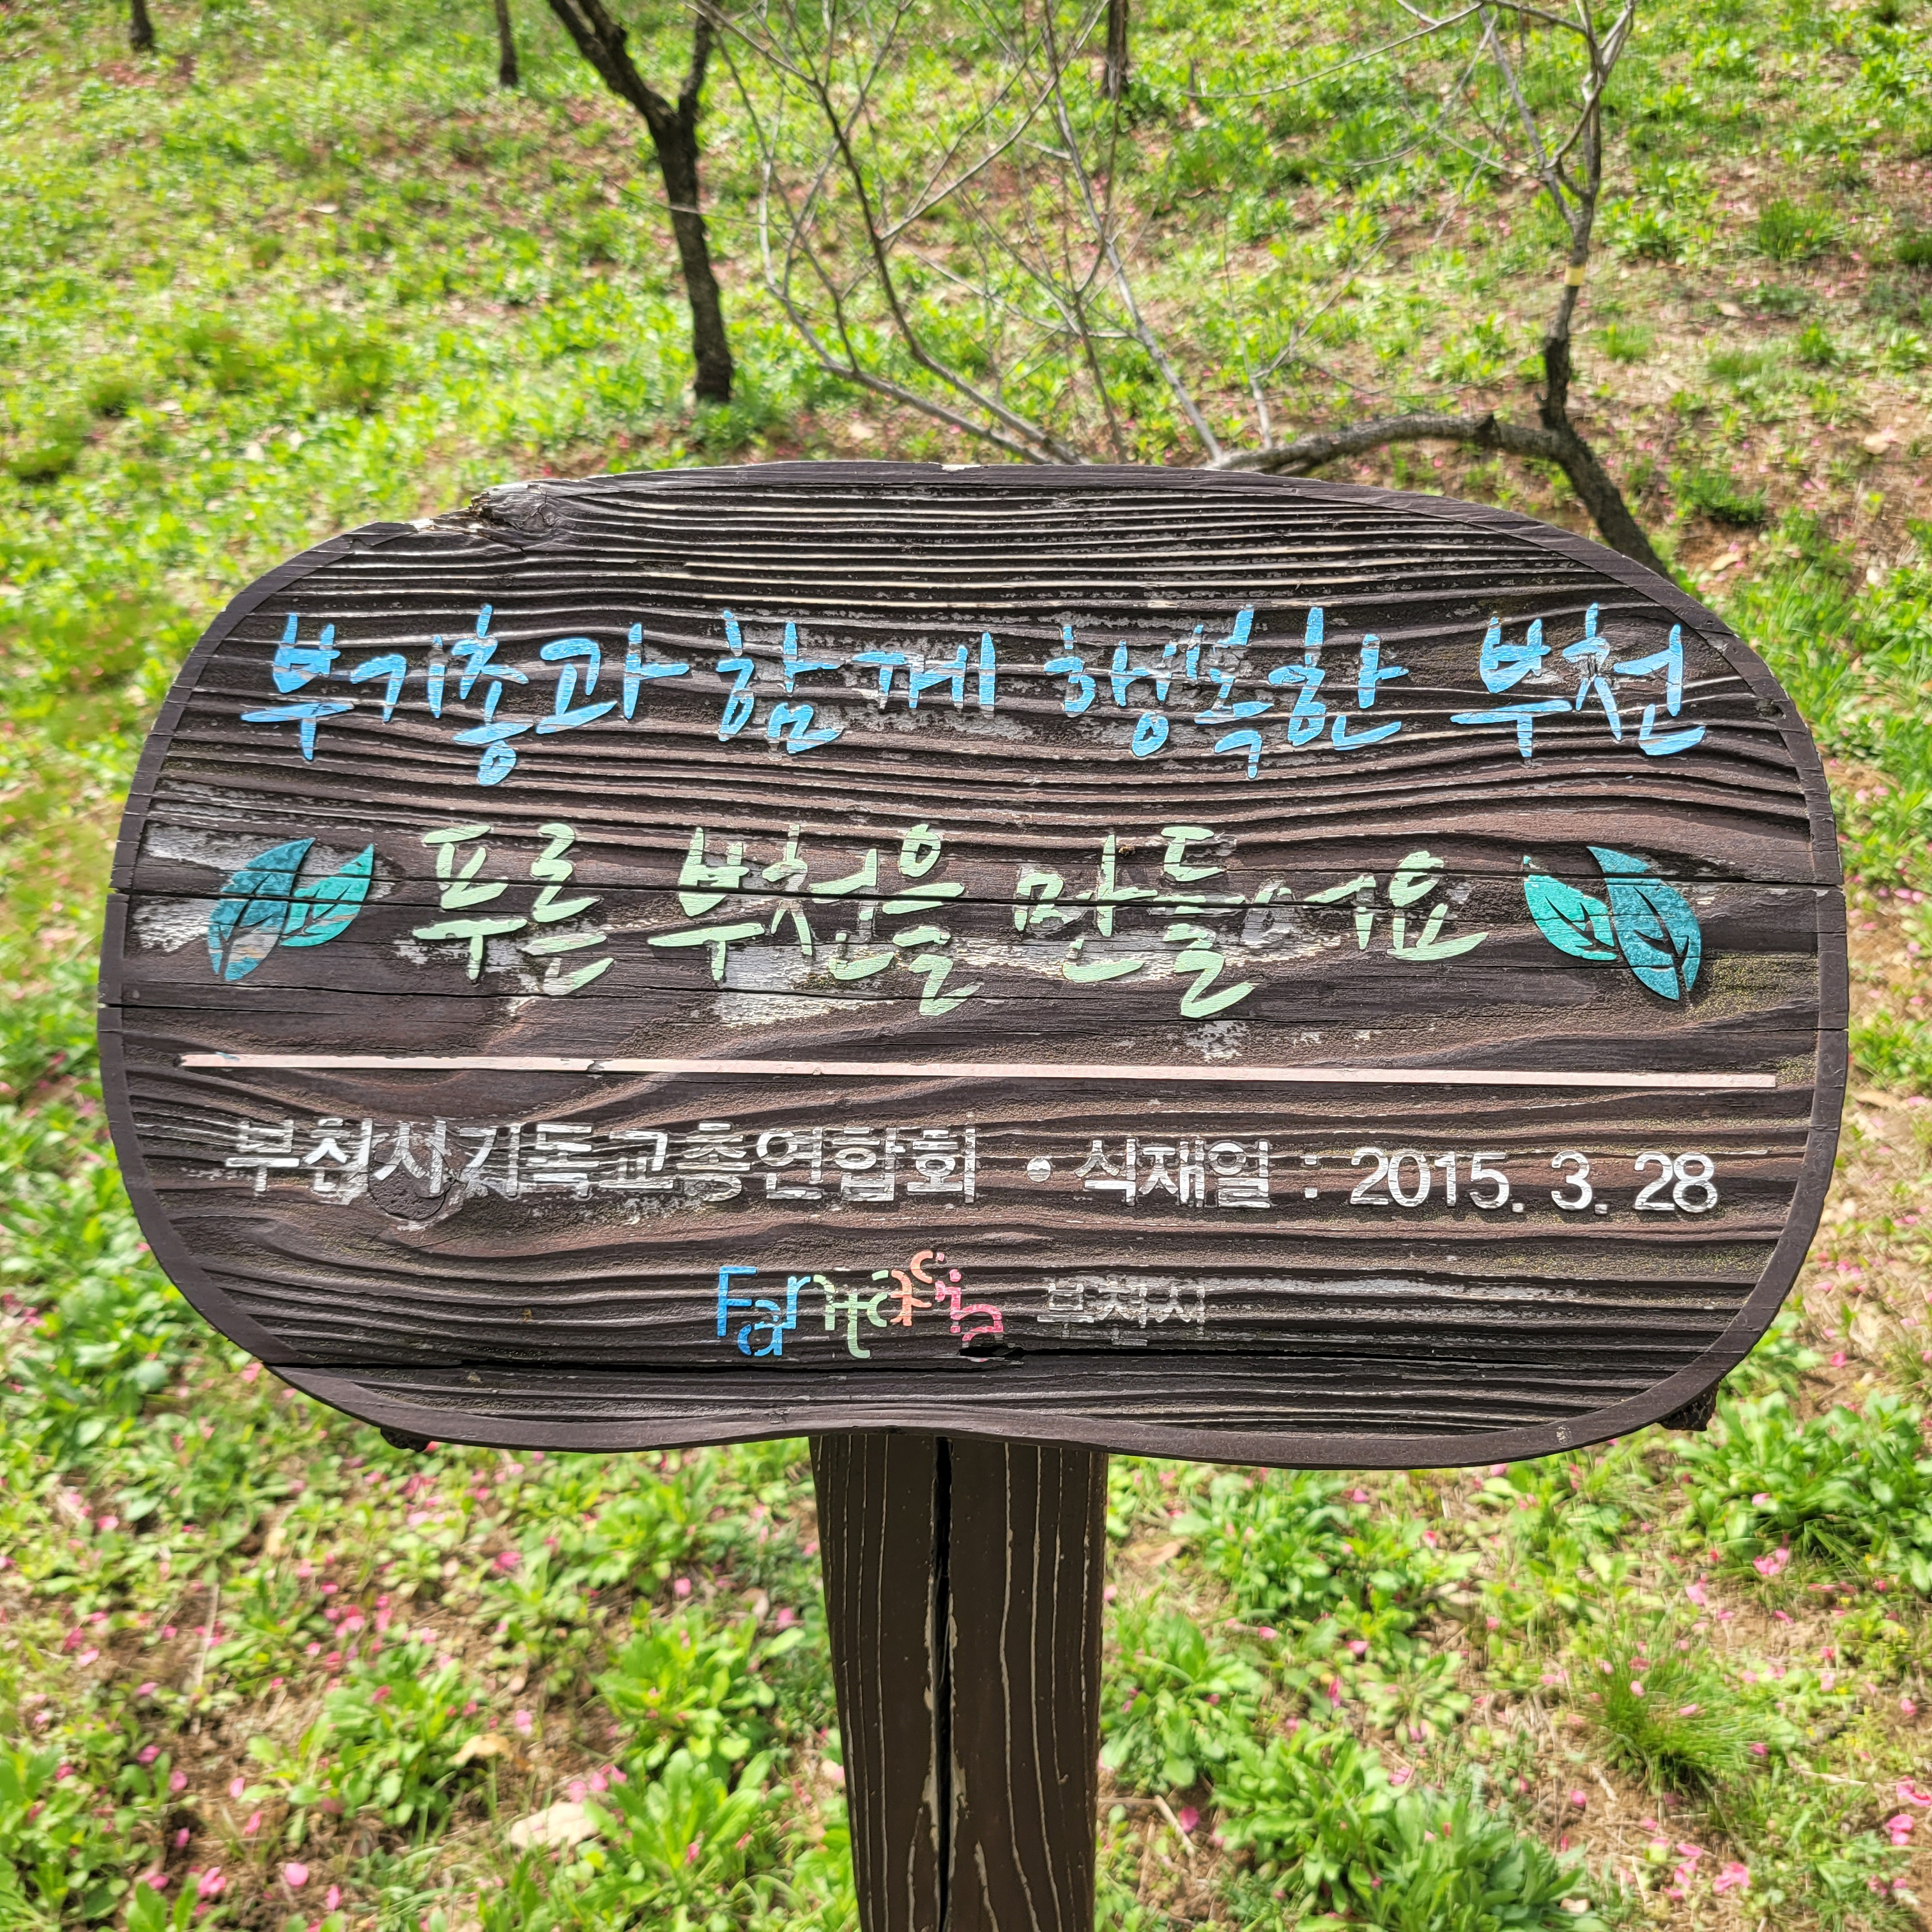 부기총과 함께 행복한 부천
푸른 부천을 만들어요
부천시기독교총연합회 • 식재일 : 2015. 3. 28
Fantasia 부천시